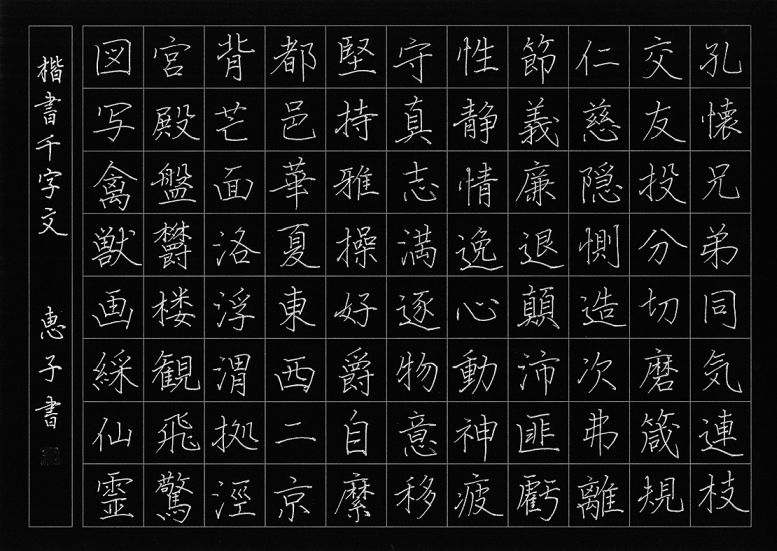 孔懐兄弟同気連枝
交友投分切磨箴規
仁慈隠惻造次弗離
節義廉退顛沛匪虧
性静情逸心動神疲
守真志満逐物意移
堅持雅操好爵自縻
都邑華夏東西二京
背芒面洛浮渭拠涇
宮殿盤欝楼観飛驚
図写禽獣画綵仙霊
楷書千字文 恵子書